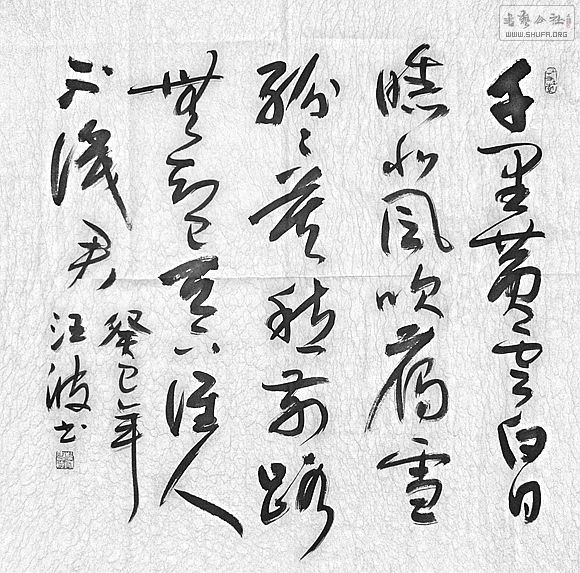 千里黄云白日
曛北风吹雁雪
纷〻莫愁前路
無知己天下谁人
不識君
癸巳年
汪波书
書藝公社
WWW.SHUFA.ORG